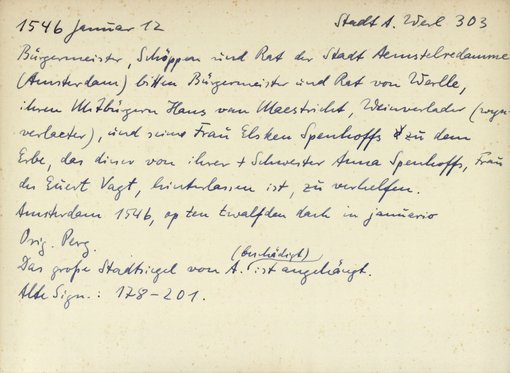 1546 Januar 12 Stadt A. Werl 303
Bürgermeister, Schöppen und Rat der Stadt Aemstelredamme
(Amsterdam) bitten Bürgermeister und Rat von Werlle,
ihren Mitbürgern Hans van Maestricht, Weinverlader (wyn-
verlaeter), und seine Frau Elsken Spenhoffs zu dem
Erbe, das dieser von ihrer + Schwester Anna Spenhoffs, Frau
des Euert Vagt, hinterlassen ist, zu verhelfen.
Amsterdam 1546, op ten twalfden dach in januario
Orig. Perg.
(beschädigt)
Das große Stadtsiegel von A. ist angehängt.
Alte Sign.: 178-201.